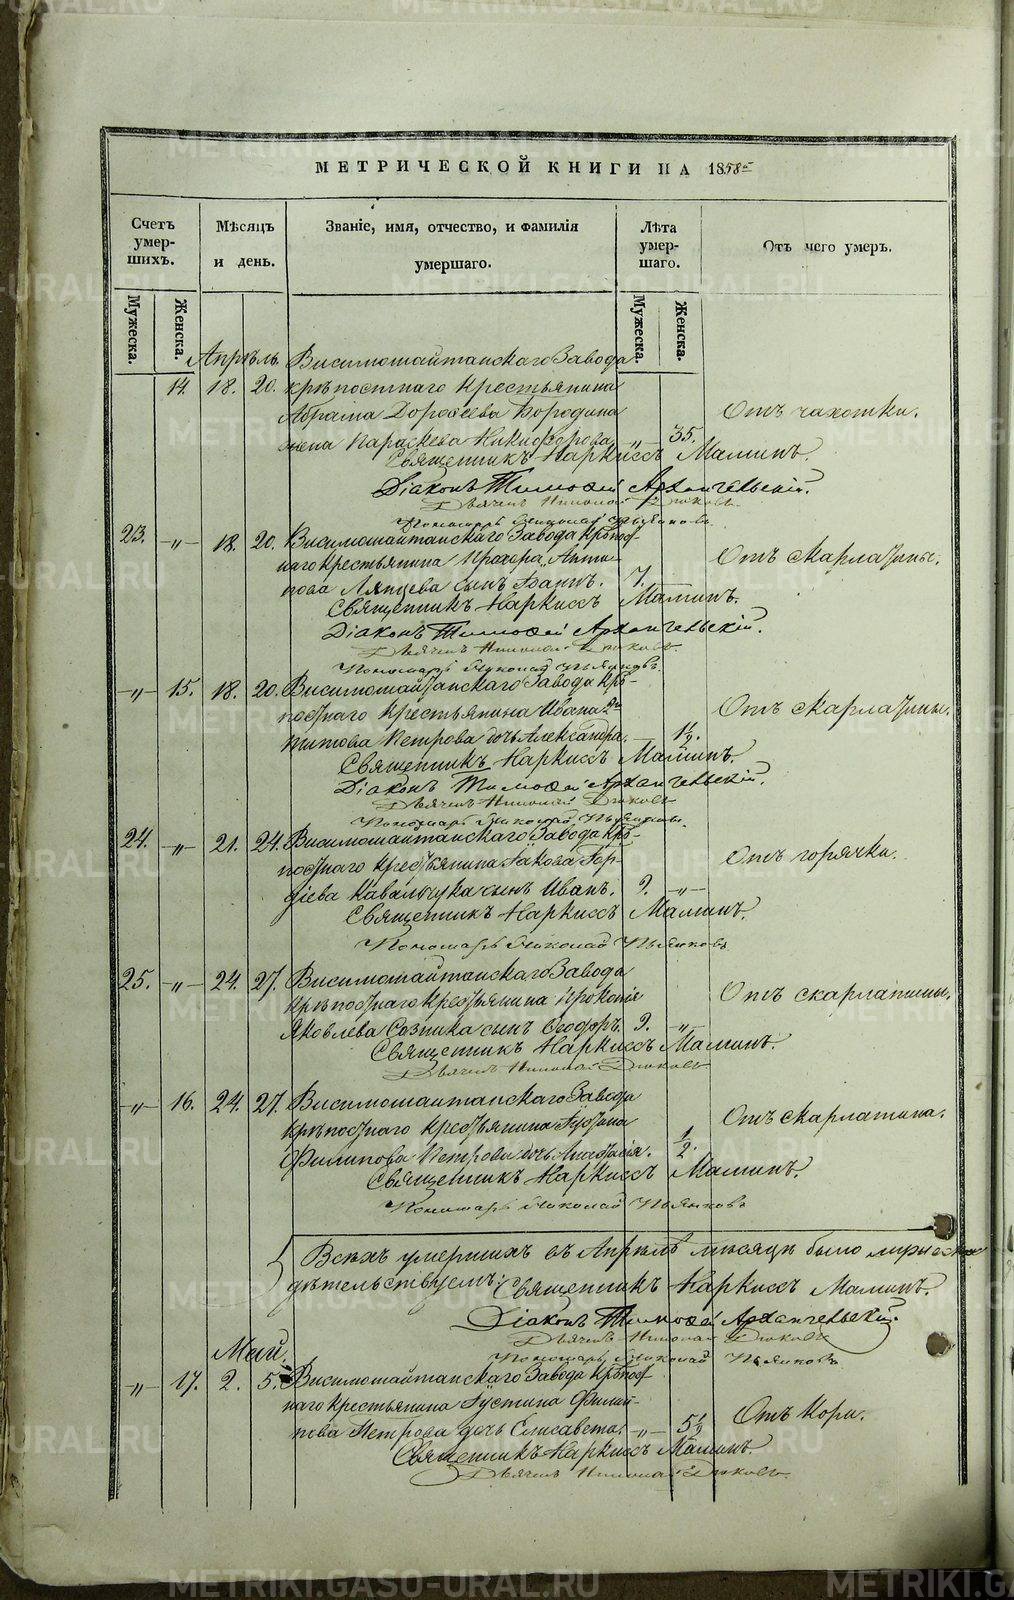 МЕТРИЧЕСКОЙ КНИГИ НА 1858й
Счетъ умер-шихъ.
Мужеска.
Женска.
Мѣсяцъ и день.
Званіе, имя, отчество, и фамилія умершаго.
Лѣта умер-шаго.
Мужеска.
Женска.
Отъ чего умеръ.
Апрѣль Висимошайтанскаго Завода
14. 18. 20. крѣпостнаго крестьянина
Абрама Дороѳеева Бородина
жена Параскева Никифорова -"- 35. Отъ чахотки.
Священникъ Наркиссъ Маминъ.
Діаконъ Тимоѳей Архангельскій.
Дьячекъ Николай Дюковъ.
Пономарь Николай Пьянковъ.
23. -"- 18. 20. Висимошайтанскаго Завода крѣпост-
наго крестьянина Прохора Анти-
пова Ляпцева сынъ Іоаннъ. 7. Отъ скарлатины.
Священникъ Наркиссъ Маминъ.
Діаконъ Тимоѳей Архангельскій.
Дьячекъ Николай Дюковъ.
Пономарь Николай Пьянковъ.
-"- 15. 18. 20. Висимошайтанскаго Завода крѣ-
постнаго крестьянина Ивана
Титова Петрова дочь Александра. - 1½. Отъ скарлатины.
Священникъ Наркиссъ Маминъ.
Діаконъ Тимоѳей Архангельскій.
Дьячекъ Николай Дюковъ
Пономарь Николай Пьянковъ.
24. -"- 21. 24. Висимошайтанскаго Завода крѣ-
постнаго крестьянина Іакова Гор-
діева Кавальчука сынъ Иванъ. 9. -"- Отъ горячки.
Священникъ Наркиссъ Маминъ.
Пономарь Николай Пьянковъ
25. -"- 24. 27. Висимошайтанскаго Завода
крѣпостнаго крестьянина Прокопія
Яковлева Созника сынъ Ѳеодоръ. 9. -"- Отъ скарлатины.
Священникъ Наркиссъ Маминъ.
Дьячекъ Николай Дюковъ
-"- 16. 24. 27. Висимошайтанскаго Завода
крѣпостнаго крестьянина Іустина
Филипова Петрова дочь Анастасія. ½. Отъ скарлатина.
Священникъ Наркиссъ Маминъ.
Пономарь Николай Пьянковъ
Всѣхъ умершихъ въ Апрѣлѣ мѣсяцѣ было
дѣтельствуемъ: Священникъ Наркиссъ Маминъ.
Діаконъ Тимоѳей Архангельскій.
Дьячекъ Николай Дюковъ
Пономарь Николай Пьянковъ
Май.
-"- 17. 2. 5. Висимошайтанскаго Завода крѣпост-
наго крестьянина Іустина Филип-
пова Петрова дочь Елисавета. -"- 5½ Отъ кори.
Священникъ Наркиссъ Маминъ.
Дьячекъ Николай Дюковъ.
METRIKI.GASO-URAL.RU